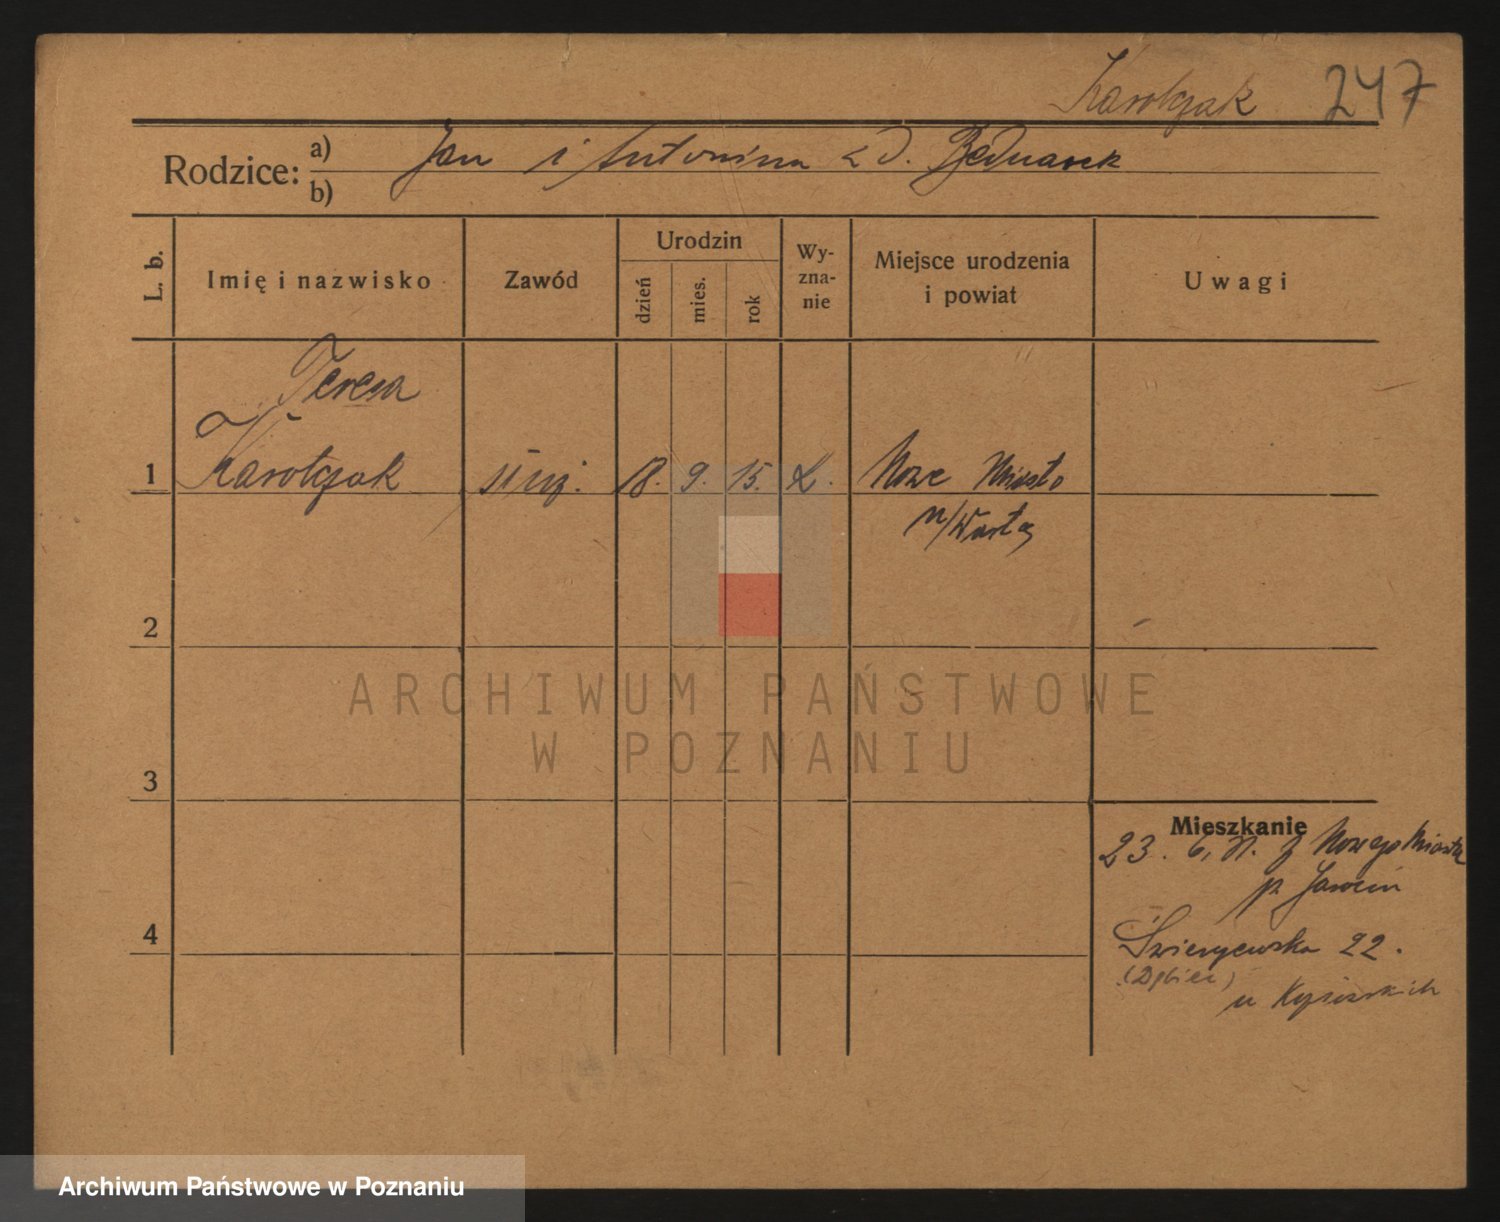 Karolczak 247
Rodzice:
a) Jan i Antonina z d. Bednarek
b)
L. b.
Imię i nazwisko
Zawód
Urodzin
dzień
mies.
rok
Wy-
zna-
nie
Miejsce urodzenia
i powiat
Uwagi
Teresa
1 Karolczak służ. 18. 9. 15. k. Nowe Miasto
n/Wartą
2
3
4
ARCHIWUM PAŃSTWOWE
W POZNANIU
Mieszkanie
23. z Nowego Miasta
p. Jarocin
22.
(Dębiec)
u
Archiwum Państwowe w Poznaniu